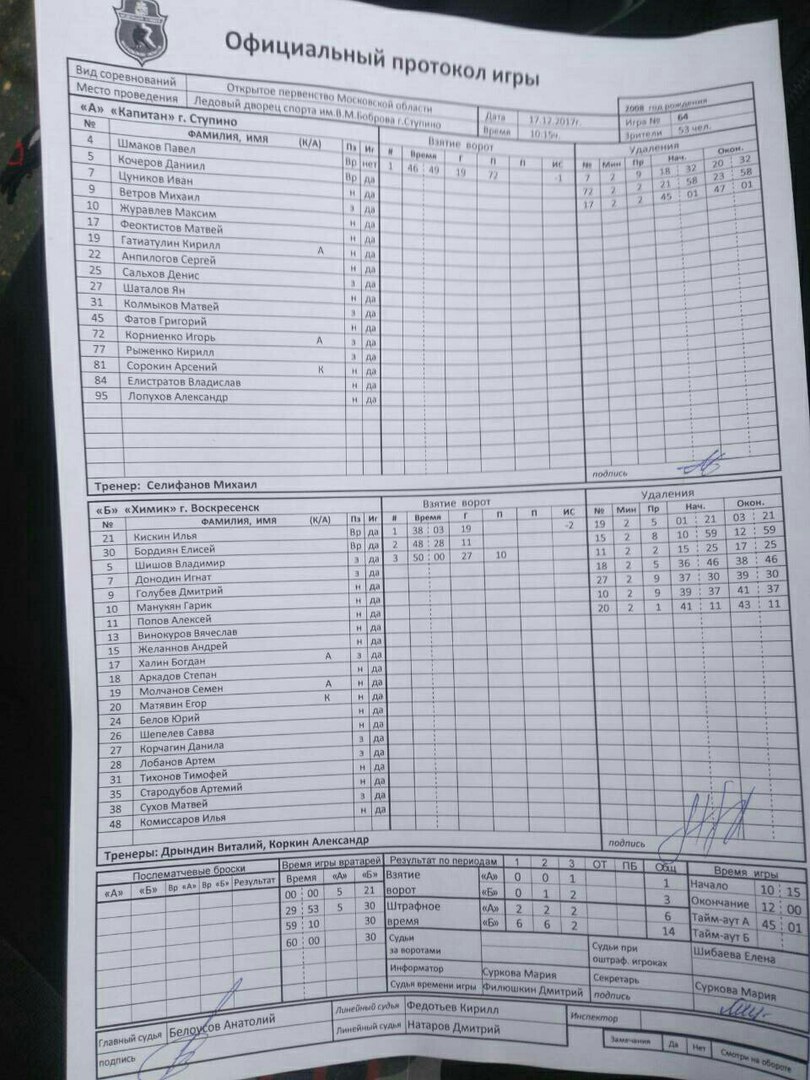 Официальный протокол игры
Вид соревнований Открытое первенство Московской области 2008 год рождения
Место проведения Ледовый дворец спорта им.В.М.Боброва г.Ступино Дата 17.12.2017г. Игра № 64
Время 10:15ч. Зрители 53 чел.
«А» «Капитан» г. Ступино Взятие ворот Удаления
№ ФАМИЛИЯ, ИМЯ (К/А) Пз Иг # Время Г П П ИС № Мин Пр Нач. Окон.
4 Шмаков Павел Вр нет 1 46 : 49 19 72 -1 7 2 9 18 : 32 20 : 32
5 Кочеров Даниил Вр да 72 2 2 21 : 58 23 : 58
7 Цуников Иван з да 17 2 2 45 : 01 47 : 01
9 Ветров Михаил н да
10 Журавлев Максим н да
17 Феоктистов Матвей н да
19 Гатиатулин Кирилл А н да
22 Анпилогов Сергей н да
25 Сальхов Денис з да
27 Шаталов Ян н да
31 Колмыков Матвей з да
45 Фатов Григорий н да
72 Корниенко Игорь А з да
77 Рыженко Кирилл з да
81 Сорокин Арсений К н да
84 Елистратов Владислав н да
95 Лопухов Александр н да
подпись
Тренер: Селифанов Михаил
«Б» «Химик» г. Воскресенск Взятие ворот Удаления
№ ФАМИЛИЯ, ИМЯ (К/А) Пз Иг # Время Г П П ИС № Мин Пр Нач. Окон.
21 Кискин Илья Вр да 1 38 : 03 19 -2 19 2 5 01 : 21 03 : 21
30 Бордиян Елисей Вр да 2 48 : 28 11 15 2 8 10 : 59 12 : 59
5 Шишов Владимир з да 3 50 : 00 27 10 11 2 2 15 : 25 17 : 25
7 Донодин Игнат з да 18 2 5 36 : 46 38 : 46
9 Голубев Дмитрий н да 27 2 9 37 : 30 39 : 30
10 Манукян Гарик н да 10 2 9 39 : 37 41 : 37
11 Попов Алексей н да 20 2 1 41 : 11 43 : 11
13 Винокуров Вячеслав н да
15 Желаннов Андрей н да
17 Халин Богдан А з да
18 Аркадов Степан н да
19 Молчанов Семен А н да
20 Матявин Егор К н да
24 Белов Юрий н да
26 Шепелев Савва з да
27 Корчагин Данила з да
28 Лобанов Артем з да
31 Тихонов Тимофей н да
35 Стародубов Артемий з да
38 Сухов Матвей з да
48 Комиссаров Илья н да
подпись
Тренеры: Дрындин Виталий, Коркин Александр
Послематчевые броски Время игры вратарей Результат по периодам 1 2 3 ОТ ПБ Общ Время игры
«А» «Б» Вр «А» Вр «Б» Результат Время «А» «Б» Взятие ворот «А» 0 0 1 1 Начало 10 : 15
00 : 00 5 21 «Б» 0 1 2 3 Окончание 12 : 00
29 : 53 5 30 Штрафное время «А» 2 2 2 6 Тайм-аут А 45 : 01
59 : 10 30 «Б» 6 6 2 14 Тайм-аут Б
60 : 00 30 Судьи за воротами Судьи при оштраф. игроках Шибаева Елена
Информатор Суркова Мария Секретарь Суркова Мария
Судья времени игры Филюшкин Дмитрий подпись
Главный судья Белоусов Анатолий Линейный судья Федотьев Кирилл Инспектор
подпись Линейный судья Натаров Дмитрий Замечания Да Нет Смотри на обороте